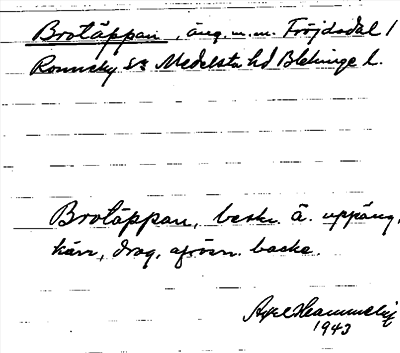 Brotäppan, äng m.m. Fröjdadal 1
Ronneby sn Medelsta hd Blekinge l.
Brotäppan, beskr. ä. uppäng,
kärr, drag, avrösn. backe.
Axel
1943